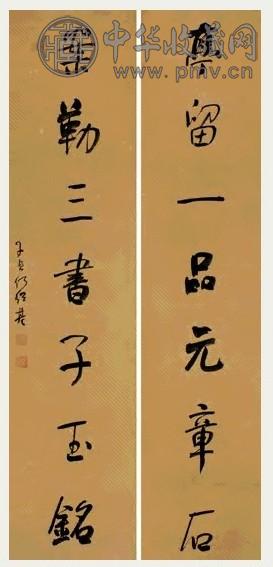 中华收藏网
www.pmv.cn
留一品元章石
勒三書子玉銘
子貞何紹基